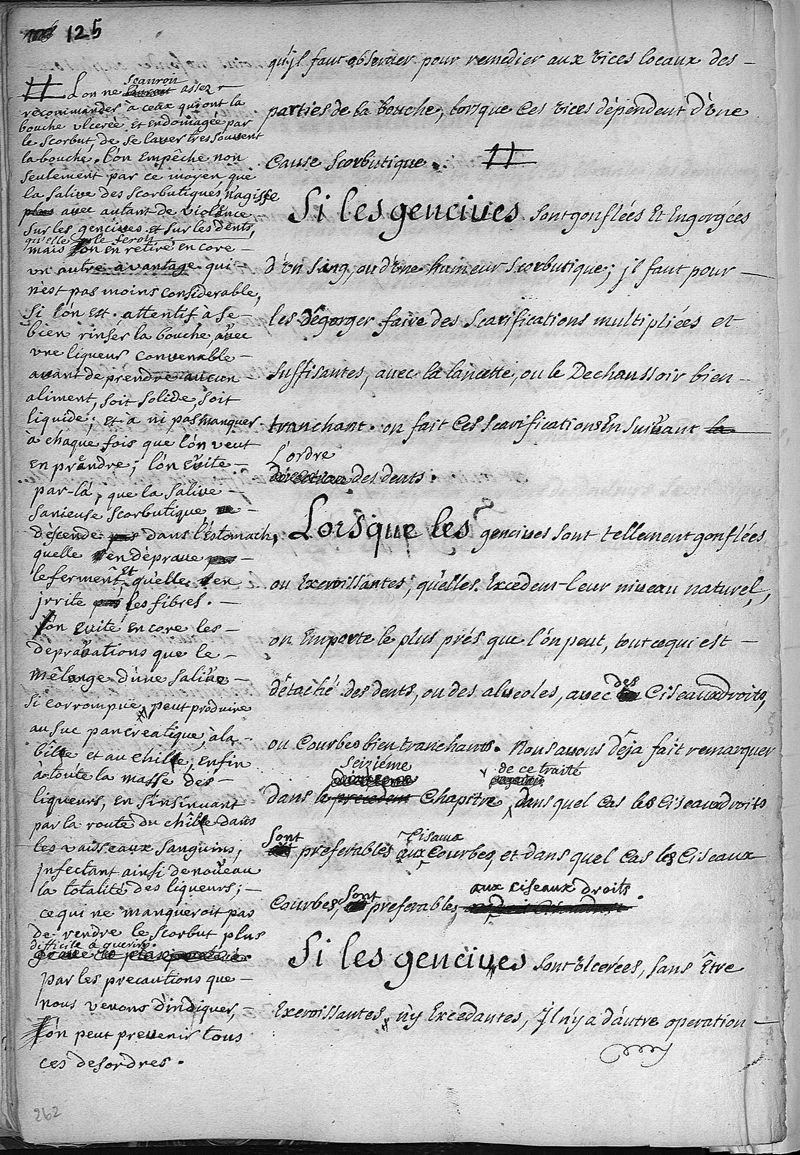 125
qu'il faut observer pour remedier aux vices locaux des
parties de la bouche, lorsque ces vices dépendent d'une
cause scorbutique. #
Si les gencives sont gonflées et engorgées
d'un sang, ou d'une humeur scorbutique; jl faut pour
les dégorger faire des scarifications multipliées et
suffisantes, avec la lancette, ou le Dechaussoir bien
tranchant. on fait ces scarifications en suivant la
l'ordre
des dents.
Lorsque les gencives sont tellement gonflées
ou exCroissantes, qu'elles excedent leur niveau naturel,
on emporte le plus prés que l'on peut, tout ce qui est
détaché des dents, ou des alveoles, avec des Ciseaux droits,
ou Courbes bien tranchants. Nous avons déja fait remarquer
seizième
de ce traité
dans le precedent Chapitre, dans quel cas les Ciseaux droits
sont preferables aux Cisaux Courbes, et dans quel cas les Ciseaux
Courbes, sont preferables aux ciseaux droits.
Si les gencives sont ulcerées, sans être
Excroissantes, n'y Excedantes, Il n'y a d'autre operation
# L'on ne sçauroit assez
recommander à ceux qui ont la
bouche ulcerée et endomagée par
le scorbut, de se laver tres souvent
la bouche. l'on empêche non
seulement par ce moyen que
la salive des scorbutiques n'agisse
plus avec autant de violence
sur les gencives et sur les dents,
qu'elle le feroit
mais l'on en retire encore
un autre avantage qui
n'est pas moins considerable,
si l'on est attentif à se
bien rinser la bouche avec
une liqueur convenable
avant de prendre aucun
aliment, soit solide, soit
liquide; et à ni pas manquer
à chaque fois que l'on veut
en prendre; l'on evite
par-là, que la salive
sanieuse scorbutique ne
déscende pas dans l'estomach,
quelle n'en déprave pas
le ferment et qu'elle n'en
jrrite pas les fibres.
l'on evite encore les
depravations que le
mêlange d'une salive
si corrompue, peut produire
au suc pancreatique, a la
bile et au chile, enfin
à toute la masse des
liqueurs, en s'insinuant
par la route du chile dans
les vaisseaux sanguins,
jnfectant ainsi de nouveau
la totalité des liqueurs;
ce qui ne manqueroit pas
de rendre le scorbut plus
difficile à guerir.
par les precautions que
nous venons d'indiquer,
l'on peut prevenir tous
ces desordres.
262